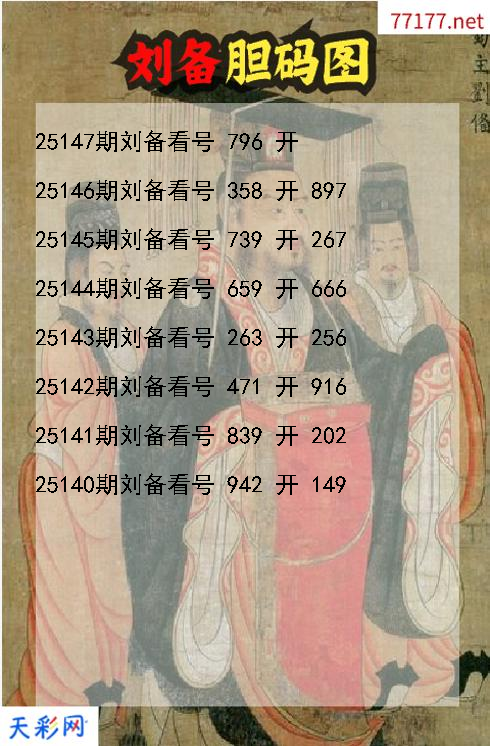 77177.net
蜀主劉備
刘备胆码图
25147期刘备看号 796 开
25146期刘备看号 358 开 897
25145期刘备看号 739 开 267
25144期刘备看号 659 开 666
25143期刘备看号 263 开 256
25142期刘备看号 471 开 916
25141期刘备看号 839 开 202
25140期刘备看号 942 开 149
天彩网